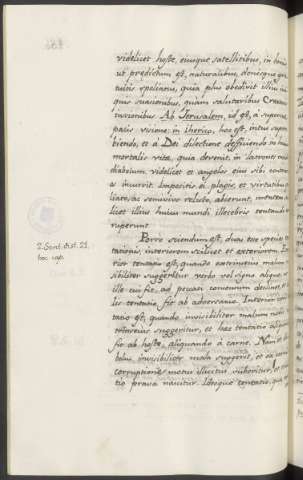 videlicet hoste, eiusque satellitibus, in bonis
ut predictum est, naturalibus, denecque gra
tuitis spoliatus, quia plus obedivit illius ini
quis suasionibus, quam salutaribus Creatoris
iussionibus. Ab Jerusalem, id est, a superna
pacis visione in Iherico, hoc est, intus super
biendo, et a Dei dilectione defluendo in hanc
mortalis vite, quia devenit in latrones
diabolum videlicet et angelos eius sibi
incurrit. Impositis ei plagis, et virtutibus
ac semivivo relicto, abierunt,
licet illius huius mundi illecebris tentando
ruperunt.
Porro sciendum est, duas esse species ten
tationis, interiorem scilicet et exteriorem.
rior tentatio est, quando extrinsecus malum
sibiliter suggeritur verbo vel signo aliquo, ut
ille cui fit, ad peccati consensum declinet, et
lis tentatio fit ab adversario. Interior
tatio est, quando invisibiliter malum
trinsecus suggeritur, et hec tentatio aliquando
fit ab hoste, aliquando a carne. Nam et
bolus invisibiliter mala suggerit, et ex carnis
corruptione motus illicitus suboritur, et
tio prava nascitur. Ideoque tentatio, que
2. Sent. dist. 21.
hoc cap.